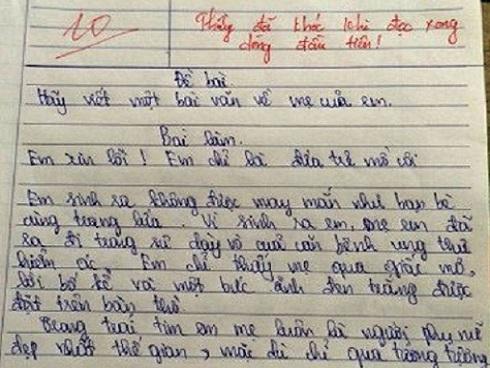 10
Thầy đã khóc khi đọc xong
dòng đầu tiên!
Đề bài
Hãy viết một bài văn về mẹ của em.
Bài làm.
Em xin lỗi! Em chỉ là đứa trẻ mồ côi
Em sinh ra không được may mắn như bạn bè
cùng trang lứa. Vì sinh ra em, mẹ em đã
ra đi trong sự dạy vò của căn bệnh ung thư
hiểm ác. Em chỉ thấy mẹ qua giấc mơ,
lời bố kể và một bức ảnh đen trắng được
đặt trên bàn thờ.
Trong trái tim em mẹ luôn là người phụ nữ
đẹp nhất thế gian, mặc dù chỉ qua tưởng tượng